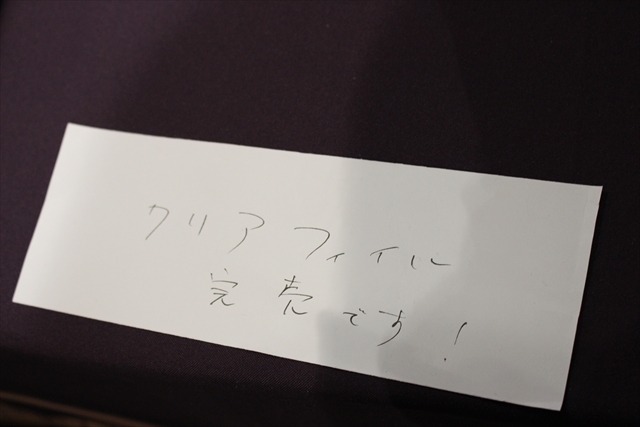 クリアフィイル
完売です!